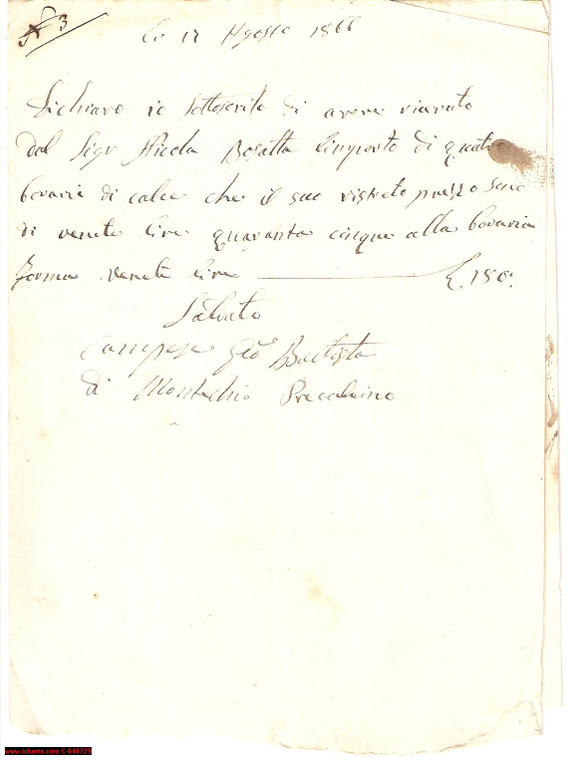 N 3
Li 12 Agosto 1866
Dichiaro io Sottoscrito di avere riceuto
dal Sigr Nicola Bosatta limporto di quatro
bovarie di calce che il suo ristreto prezzo sono
di venete lire quaranta cinque alla bovaria
forma venete lire L 180.
Salvato
Campese Gio Battista
di Montechio Precalcino
www.icharta.com C-048779